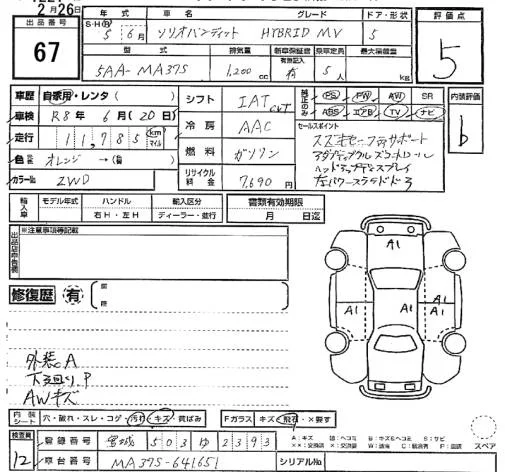 2月26日
出品番号 67
年式 車名 グレード ドア・形状 評価点
S・H・R 5年6月 ソリオバンディット HYBRID MV 5
型式 排気量 新車保証書 乗車定員 最大積載量
5AA-MA37S 1,200cc 有無記入 有 5人 kg
5
車歴 自家用・レンタ(
車検 R8年6月(20日)
走行 11,785 km マイル
色 オレンジ →(
カラーNo. 2WD
シフト IAT CVT
冷房 AAC
燃料 ガソリン
リサイクル料金 7,690円
純正のみ PS PW AW SR
ABS エアB TV ナビ
内装評価 b
セールスポイント
スズキセーフティサポート
ヘッドアップディスプレイ
左パワースライドドア
輸入車 モデル年式 ハンドル 輸入区分
年 右H・左H ディーラー・並行
書類有効期限
月 日迄
出品店申告欄 ※注意事項等記載
修復歴 有
A1
A1 A1 A1
外装A
下廻り.P
AWキズ
内装シート 穴・破れ・スレ・コゲ・汚れ・キズ・黄ばみ
Fガラス キズ・飛石・×要す
検査員 12
登録番号 宮城 503 ゆ 2393
車台番号 MA37S-641651
シリアルNo.
A:キズ
スペア